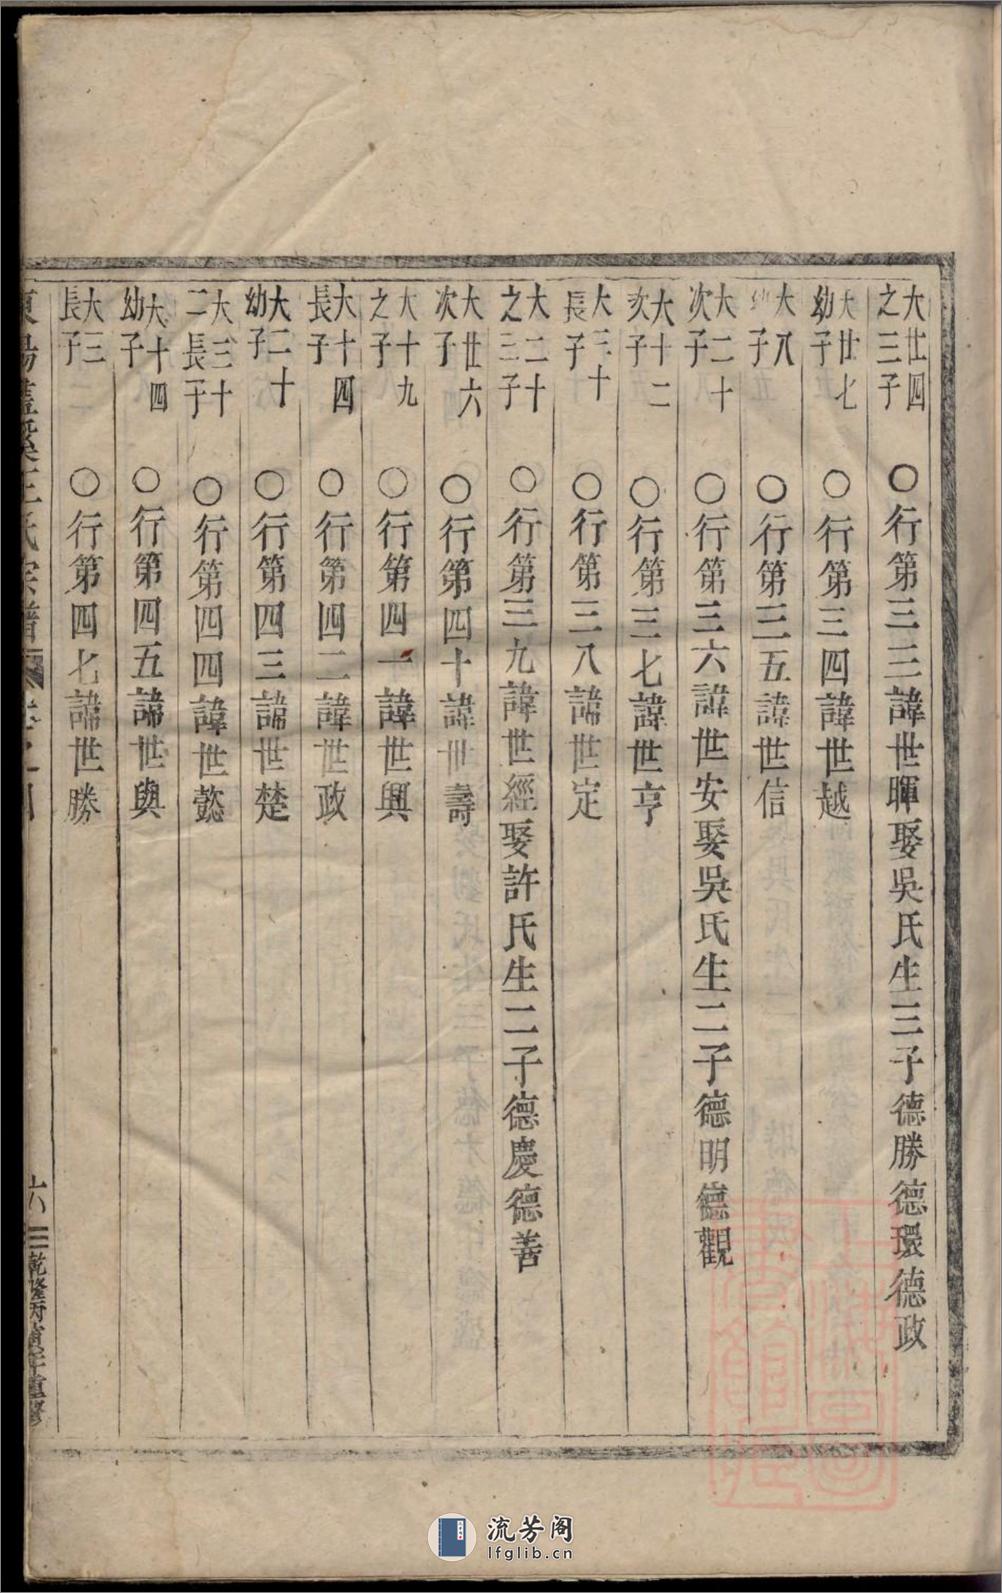 大廿四之三子○行第三三諱世暉娶吳氏生三子德勝德環德政
大廿七幼子○行第三四諱世越
大八幼子○行第三五諱世信
大二十次子○行第三六諱世安娶吳氏生二子德明德觀
大十二次子○行第三七諱世亨
大三十長子○行第三八諱世定
大二十之三子○行第三九諱世經娶許氏生二子德慶德善
大廿六次子○行第四十諱世壽
大十九之子○行第四一諱世興
大十四長子○行第四二諱世政
大二十幼子○行第四三諱世楚
大三十二長子○行第四四諱世懿
大十四幼子○行第四五諱世與
大三長子○行第四七諱世勝
王氏宗譜
六
乾隆丙
重修
流芳阁
lfglib.cn